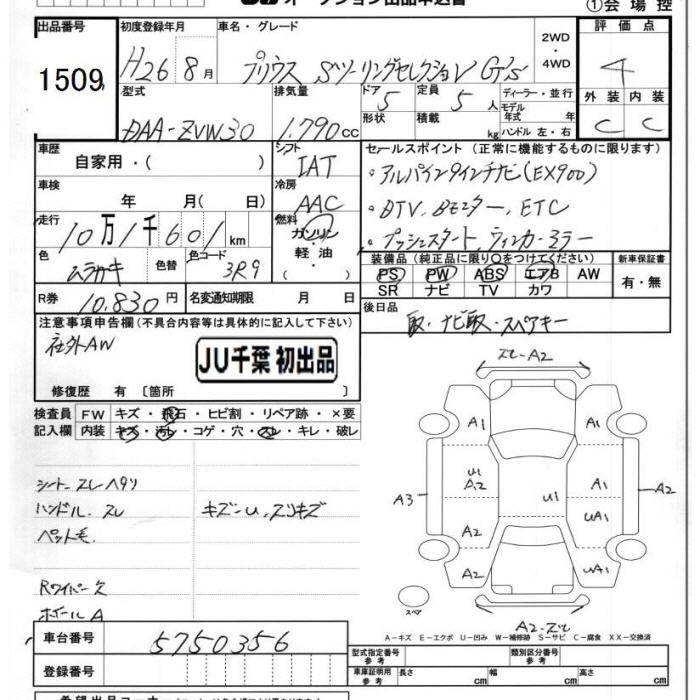 オークション出品申込書
①会場控
出品番号 初度登録年月 車名・グレード 2WD・4WD 評価点
1509 H26 8月 プリウス Sツーリングセレクション G's 4
型式 排気量 ドア 定員 ディーラー・並行 外装 内装
DAA-ZVW30 1.790cc 5 5人 モデル年式 年 C C
形状 積載 kg ハンドル 左・右
車歴 シフト セールスポイント (正常に機能するものに限ります)
自家用・( ) IAT ・アルパイン9インチナビ(EX900)
車検 年 月(日) 冷房 AAC ・DTV、Bモニター、ETC
走行 10万1千601km 燃料 ガソリン・軽油・( ) ・プッシュスタート、ウィンカーミラー
色 ムラサキ 色替 色コード 3R9 装備品 (純正品に限り○をつけてください) 新車保証書
PS PW ABS エアB AW 有・無
SR ナビ TV カワ
R券 10.830円 名変通知期限 月 日 後日品
注意事項申告欄(不具合内容等は具体的に記入して下さい) 取・ナビ取・スペアキー
社外AW
JU千葉 初出品
修復歴 有〔箇所 〕
検査員 FW キズ・飛石・ヒビ割・リペア跡・×要
記入欄 内装 キズ・汚レ・コゲ・穴・スレ・キレ・破レ
シート スレ ヘタリ
ハンドル スレ キズ−U、スリキズ
ペット毛
Rワイパー欠
ホイールA
スレ-A2
A1 A1
U1 A2 U1 A1
A3 A2
A2 UA1
A2 UA1
スペア
A2-スレ
A−キズ E−エクボ U−凹み W−補修跡 S−サビ C−腐食 XX−交換済
車台番号 5750356 型式指定番号 参考 類別区分番号 参考
登録番号 車庫証明用 参考 長さ cm 幅 cm 高さ cm